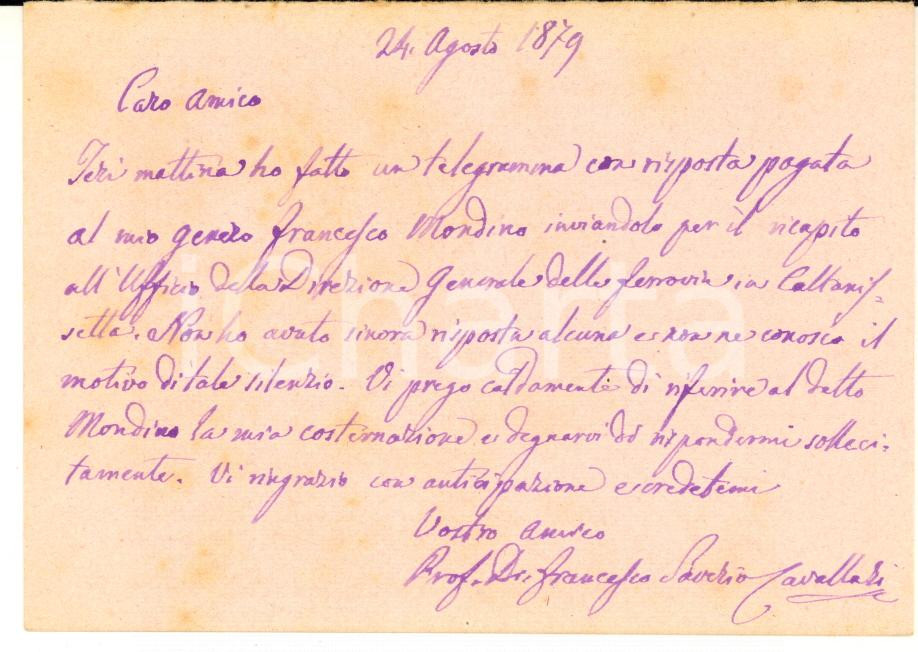 24. Agosto 1879
Caro Amico
Ieri mattina ho fatto un telegramma con risposta pagata
al mio genero Francesco Mondino inviandolo per il ricapito
all'Ufficio della Direzione Generale delle ferrovie in Caltanis-
setta. Non ho avuto sinora risposta alcuna e non ne conosco il
motivo di tale silenzio. Vi prego caldamente di riferire al detto
Mondino la mia costernazione e degnarvi di rispondermi solleci-
tamente. Vi ringrazio con anticipazione e credetemi
Vostro amico
Prof. Dr. Francesco Saverio Cavallari
iCharta